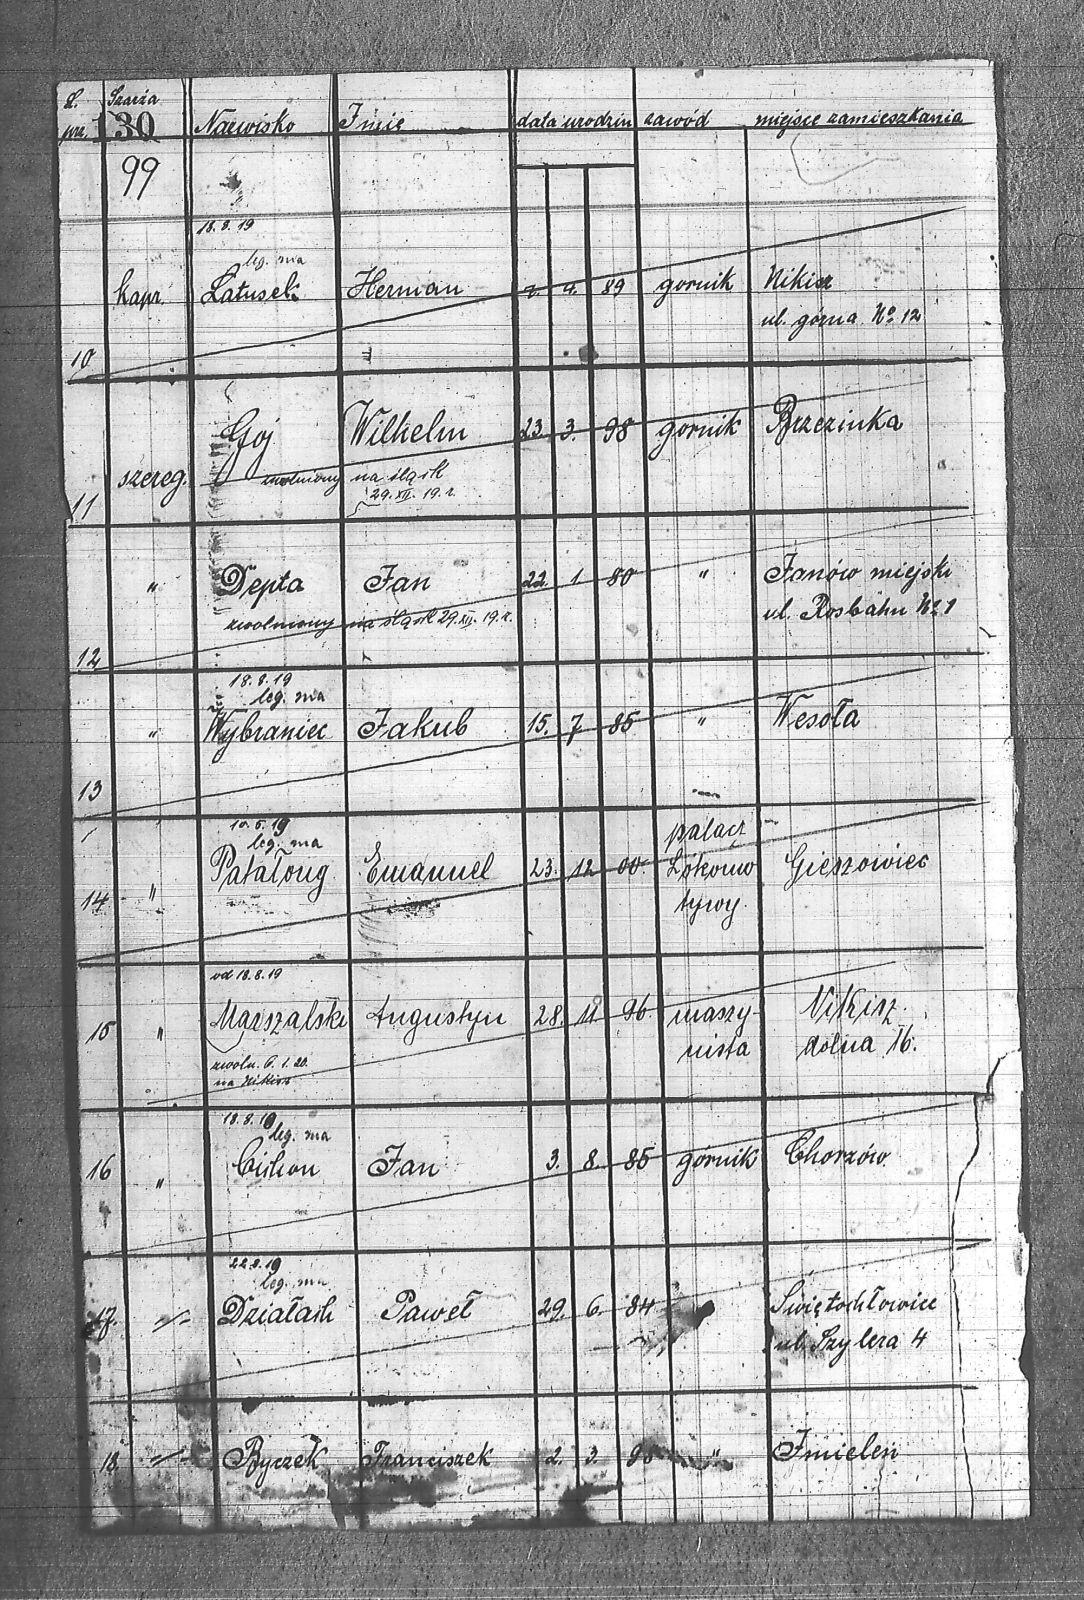 L. Szarża
prz. 130 Nazwisko Imię data urodzin zawód miejsce zamieszkania
99
18.8.19
leg. ma
kapr. Latusek Herman 2. 4. 89 gornik Nikisz
ul. górna No 12
10
Goj Wilhelm 23. 3. 98 gornik Brzezinka
szereg. zwolniony na śląsk
29.XII.19.r.
11
" Depta Jan 22. 1 80 " Janów miejski
ul. Rosbahn No 1
zwolniony na śląsk 29.XII.19.r.
12
18.8.19
leg. ma
" Wybraniec Jakub 15. 7 85 " Wesoła
13
10.5.19
leg. ma
palacz
14 " Patałong Emanuel 23. 12 00. Lokomo Gieszowiec
tywy.
od 18.8.19
15 " Marszalski Augustyn 28. 11 96 maszy- Nikisz.
nista dolna 16.
zwoln. 6.1.20.
na Nikisz
18.8.19
leg. ma
16 " Cichon Jan 3. 8. 85 górnik Chorzów
22.8.19
leg. ma
17. -"- Działach Paweł 29. 6. 84 " Świętochłowice
ul. Szylera 4
18. -"- Ryczek Franciszek 2. 3. 98 " Imielen